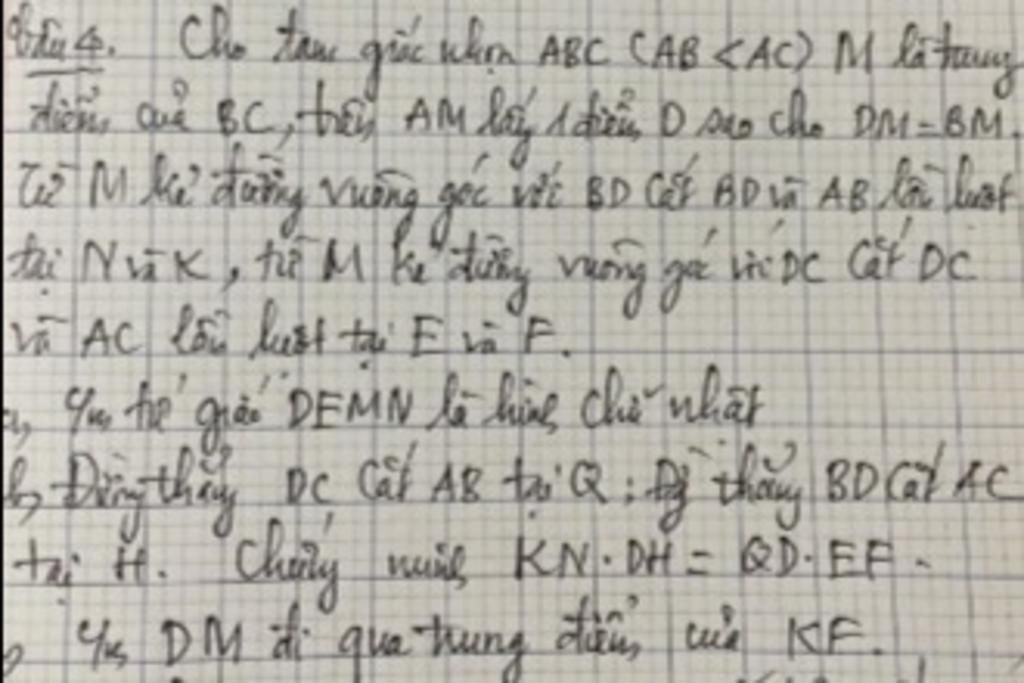 Câu 4. Cho tam giác nhọn ABC (AB < AC) M là trung
điểm của BC, trên AM lấy 1 điểm D sao cho DM = BM.
Từ M kẻ đường vuông góc với BD cắt BD và AB lần lượt
tại N và K, từ M kẻ đường vuông góc với DC cắt DC
và AC lần lượt tại E và F.
a, Cm tứ giác DEMN là hình chữ nhật
b, Đường thẳng DC cắt AB tại Q; Đg thẳng BD cắt AC
tại H. Chứng minh KN . DH = QD . EF .
Cm DM đi qua trung điểm của KF.